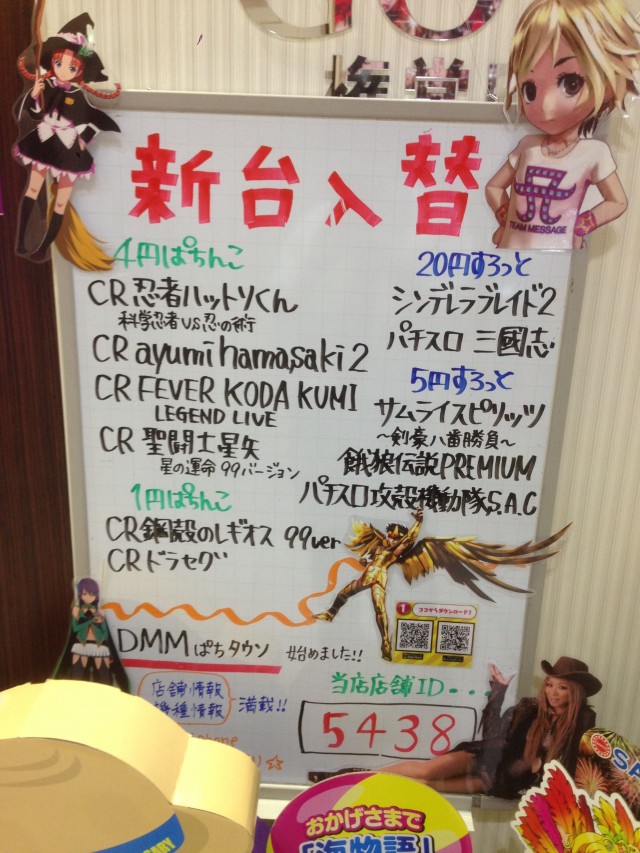 新台入替
4円ぱちんこ
CR忍者ハットリくん
科学忍者VS忍の術
CR ayumi hamasaki 2
CR FEVER KODA KUMI
LEGEND LIVE
CR 聖闘士星矢
星の運命 99バージョン
1円ぱちんこ
CR鋼殻のレギオス 99ver
CRドラセグ
20円すろっと
シンデレラブレイド2
パチスロ 三國志
5円すろっと
サムライスピリッツ
～剣豪八番勝負～
餓狼伝説PREMIUM
パチスロ攻殻機動隊S.A.C
TEAM MESSAGE
1 ココからダウンロード!
DMMぱちタウン 始めました!!
店舗情報
機種情報
満載!!
phone
当店店舗ID・・・
5438
おかげさまで
「海物語」